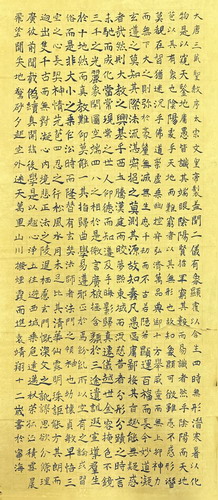 大唐三藏聖教序太宗文皇帝製蓋聞二儀有象顯覆載以含生四時無形潛寒暑以化
物是以窺天鑒地庸愚皆識其端明陰洞陽賢哲罕窮其數然而天地
苞以其有象也陰陽處乎天地而難窮者以其無形也故知象顯可徵雖愚不惑形潛
莫覩在智猶迷況乎佛道崇虛乘幽控寂弘濟萬品典御十方舉威靈而無上抑神力
而無下大之則彌於豪釐無滅無生歷千劫而不古若隱若顯運百福而長今妙道凝
玄遵之莫知其際法流湛寂挹之莫測其源故知蠢蠢凡愚區區庸鄙投其旨趣能無疑惑
者哉然則大教之興基乎西土騰漢庭而皎夢照東域而流慈昔者分形分跡之時言
未馳而成化當常現常之世人仰德而知遵及乎晦影歸真遷儀越世金容掩色不鏡
三千之光麗象開圖空端四八之相於是微言廣被拯含類於三途遺訓遐宣導群生
於十地然而真教難仰莫能一其旨歸曲學易遵邪正於焉紛糾所以空有之論或習
俗而是非大小之乘乍沿時而隆替有玄奘法師者法門之領袖也幼懷貞敏早悟三
空之心長契神情先苞四忍之行松風水月未足比其清華仙露明珠詎能方其朗潤
迥出隻千古而無對凝心內境悲正法之陵遲栖慮玄門慨深文之訛謬思欲分條析理
廣彼前聞截偽續真開茲後學是以翹心淨土往遊西域乘危遠邁杖策孤征積雪晨
飛塗間失地驚砂夕起空外迷天萬里山川撥煙霞而進 袁靖翔十二歲書於寧海